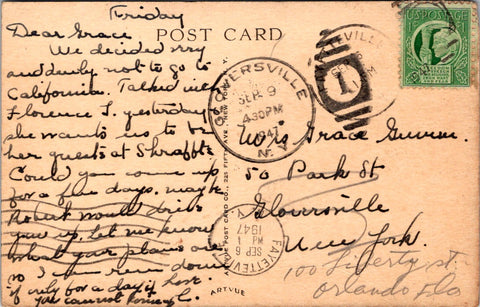 Friday
POST CARD
Dear Grace
We decided very
suddenly not to go to
California. Talked with
Florence S. yesterday
she wants us to be
her guests at
Could you come up
for a few days, maybe
Robert would drive
you up, let me know
what your plans are
so I can
if only for a day. Love.
you cannot
GLOVERSVILLE
SEP 9
4 30 PM
1947
N. Y.
1
U.S. POSTAGE
Mrs Grace
50 Park St
Gloversville
New York.
100 Liberty st.
Orlando Fla
FAYETTEVILLE
SEP 6
1 PM
1947
POST CARD CO., 225 FIFTH AVE., NEW YORK
ARTVUE